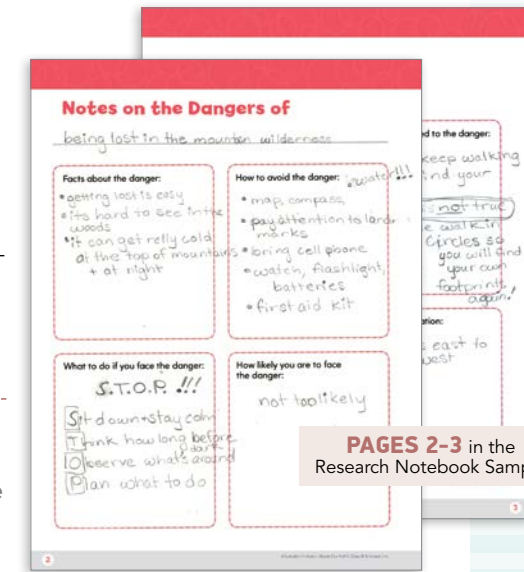 Notes on the Dangers of
being lost in the mountan wilderness
Facts about the danger:
• getting lost is easy
• its hard to see in the
woods
• it can get relly cold
at the top of mountains
+ at night
How to avoid the danger:
• water!!!
• map, compass,
• pay attention to land
marks
• bring cell phone
• watch, flashlight,
batteries
• first aid kit
What to do if you face the danger:
S.T.O.P. !!!
Sit down + stay calm
Think how long before
dark
Observe what's around
Plan what to do
How likely you are to face
the danger:
not too likely
2
d to the danger:
keep walking
nd your
not true
walk in
circles so
you will find
your own
footprints
again!
ation:
east to
west
3
PAGES 2–3 in the
Research Notebook Samp